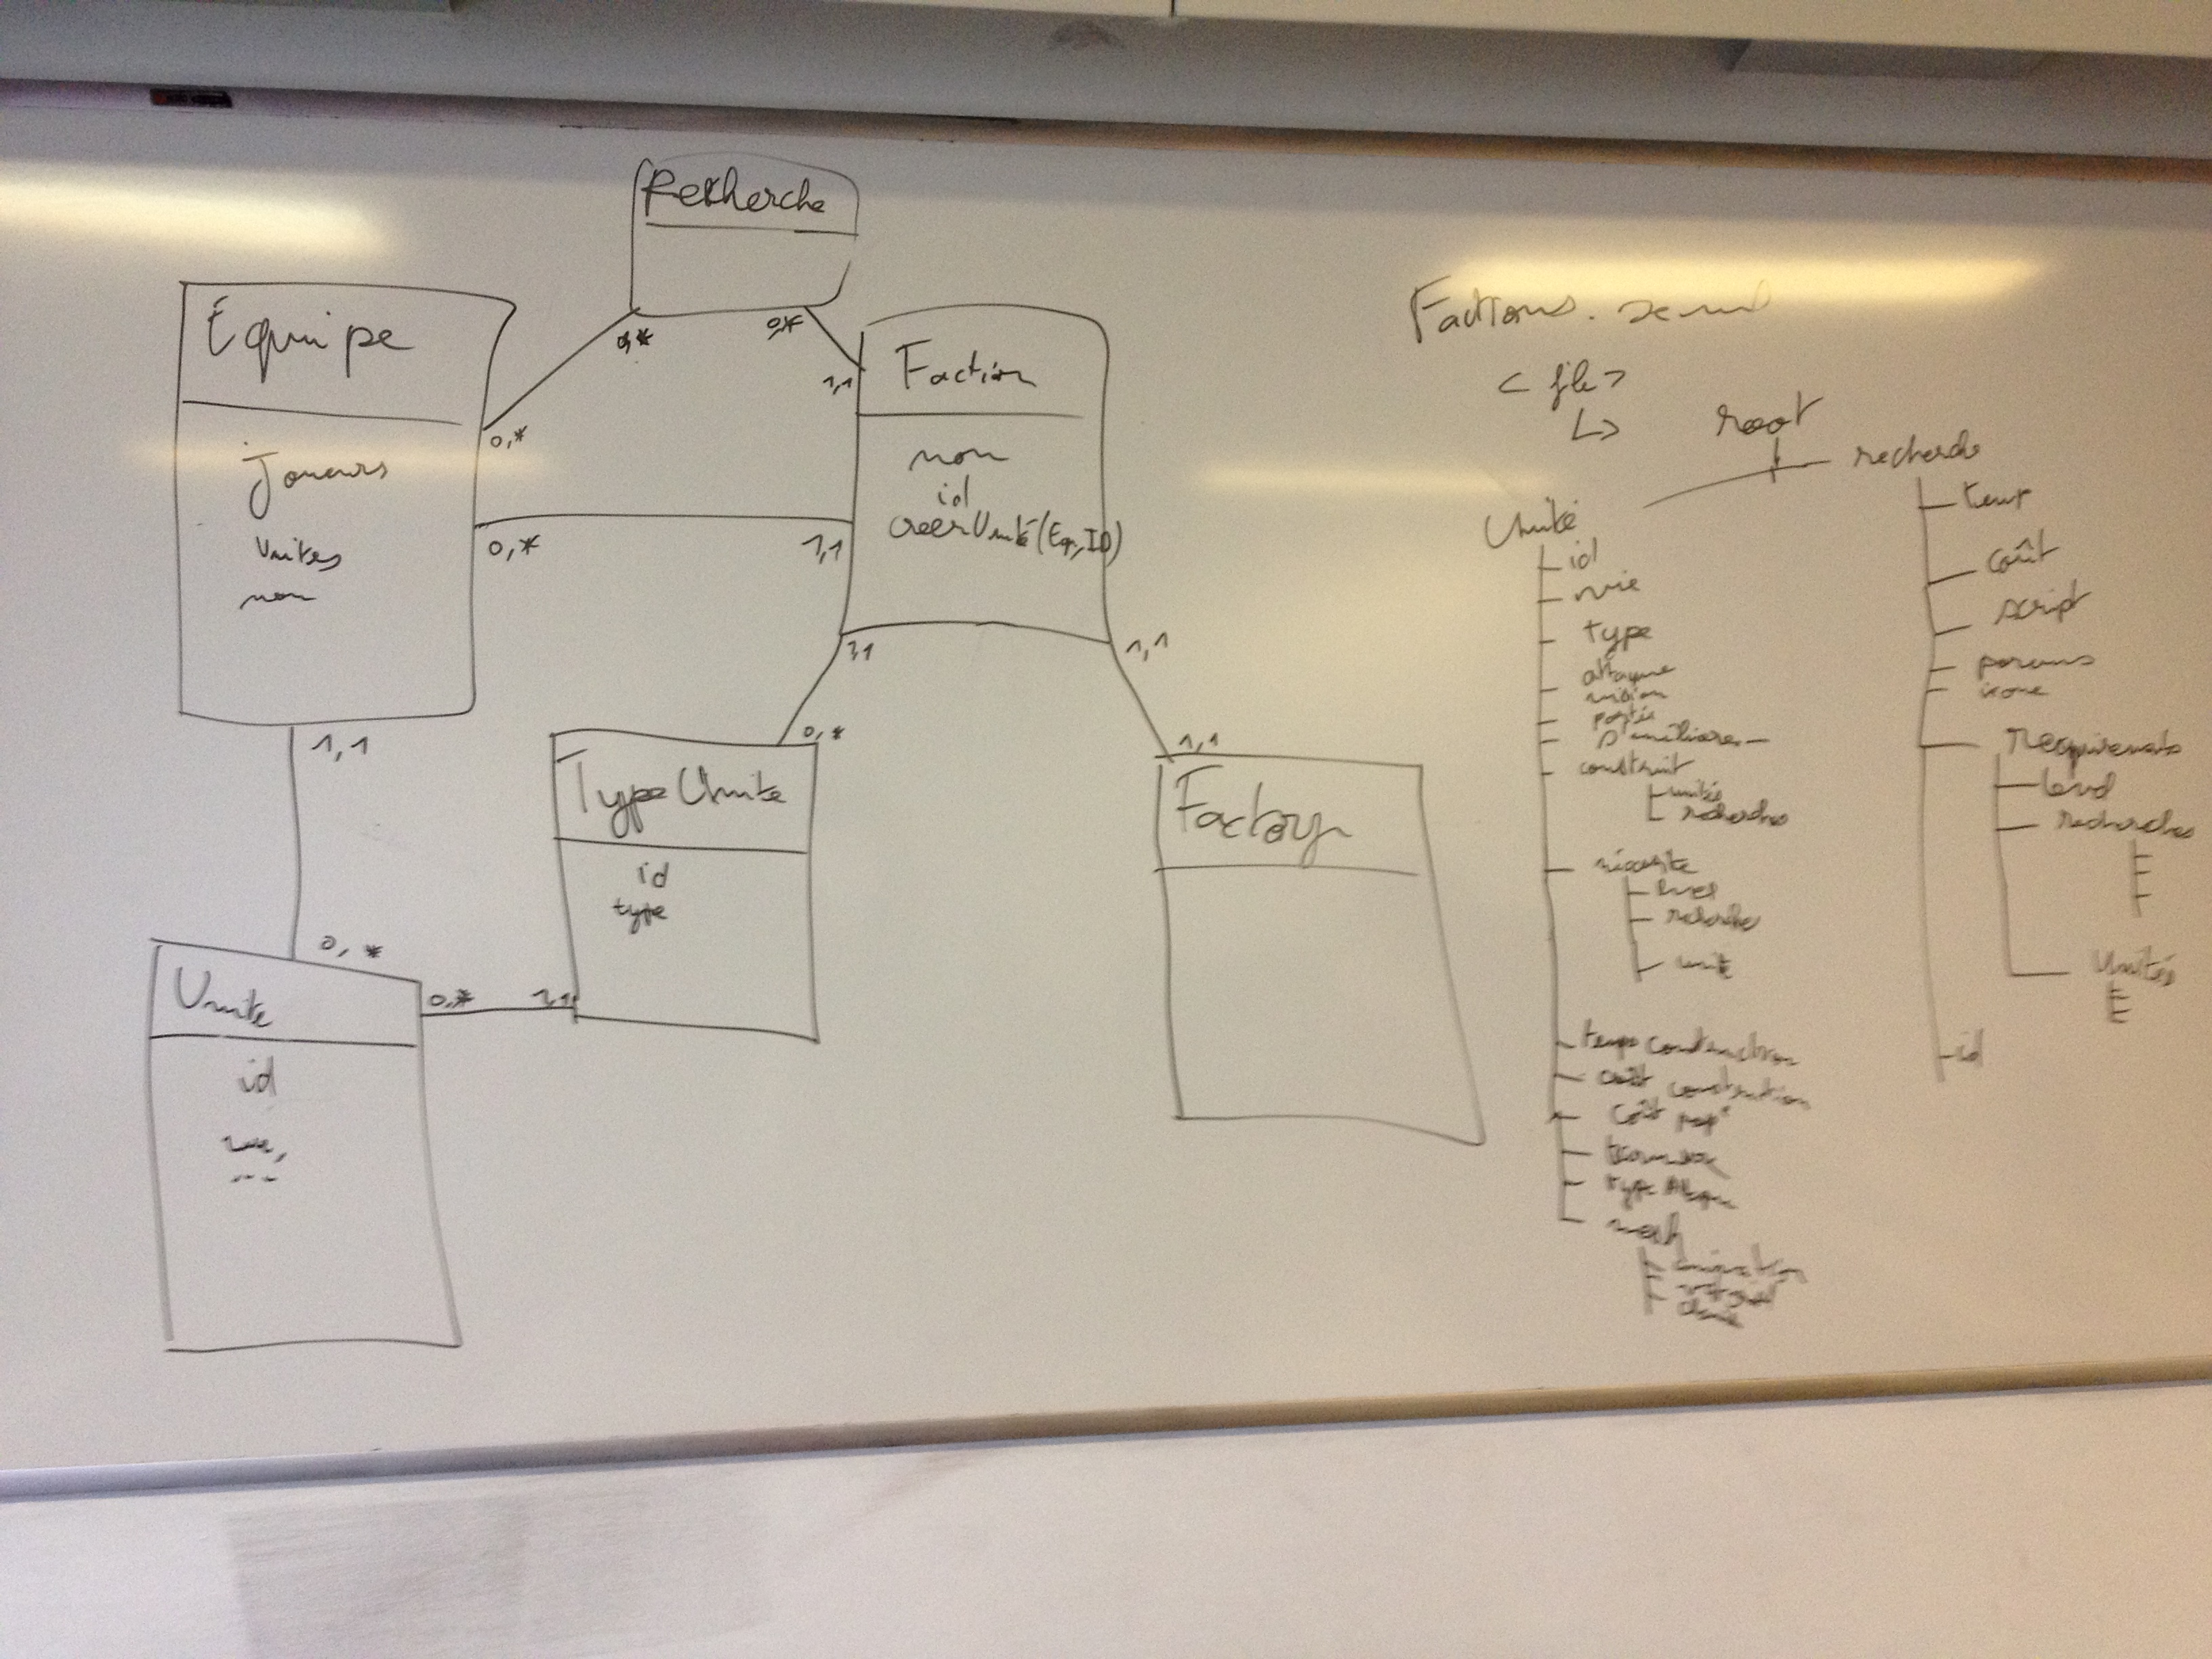 Recherche
0,*
0,*
Équipe
Joueurs
Unites
nom
0,*
0,*
1,1
1,1
1,1
Faction
nom
id
creerUnité(Eq, ID)
1,1
1,1
TypeUnite
id
type
0,*
1,1
Factory
1,1
Unite
id
vie,
---
0,*
0,*
Factions.xml
<file>
↳
root
Unité
id
vie
type
attaque
vision
portée
s'améliorer
construit
unités
recherches
nécessite
level
recherches
unité
temps construction
coût construction
coût pop°
type Attaque
mesh
recherche
temps
coût
script
params
icone
Requirements
level
recherches
Unités
id